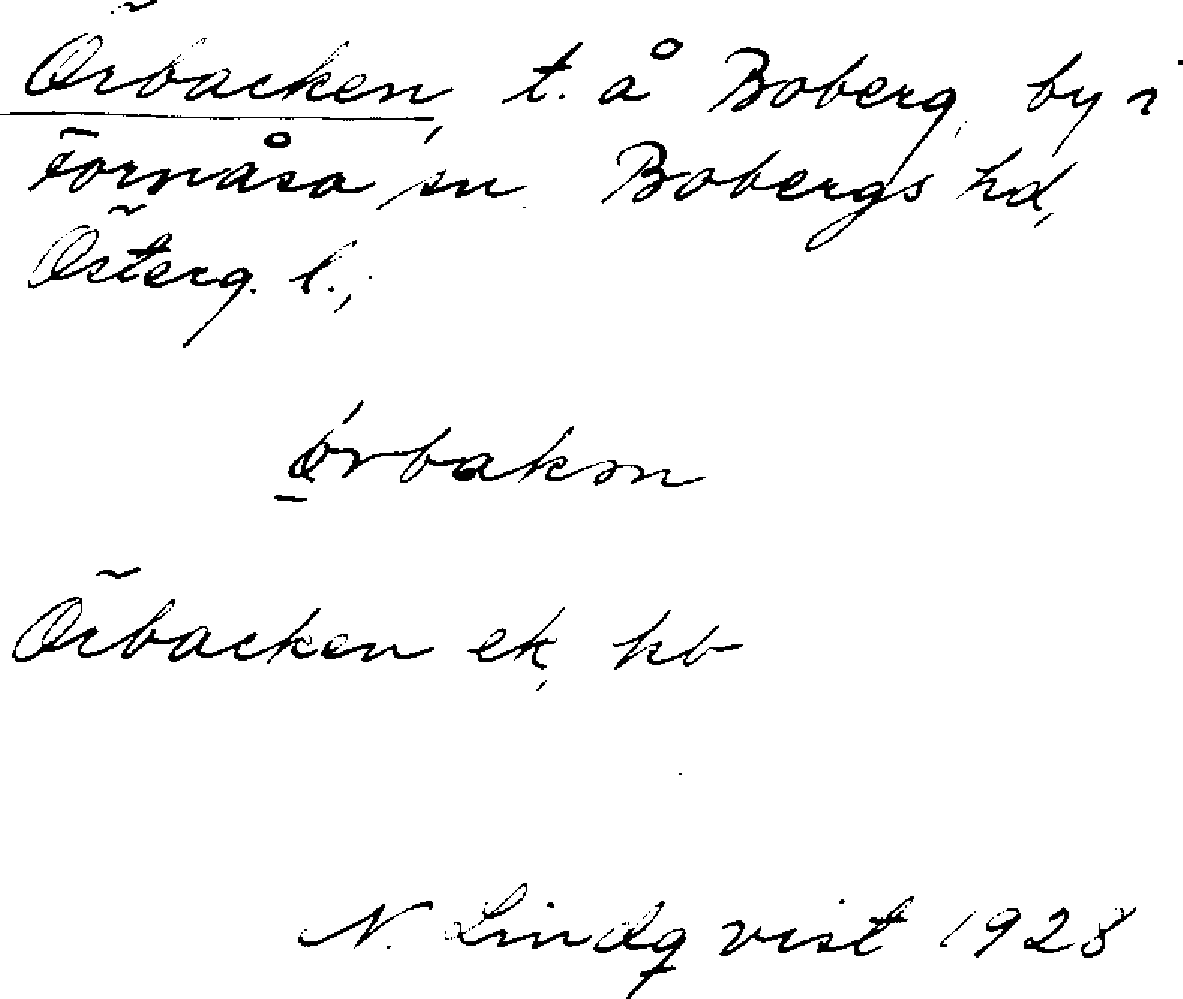 Örbacken, t. å Boberg, by i
Fornåsa sn. Bobergs hd,
Österg. l.;
ørbakən
Örbacken ek, kb
N. Lindqvist 1928